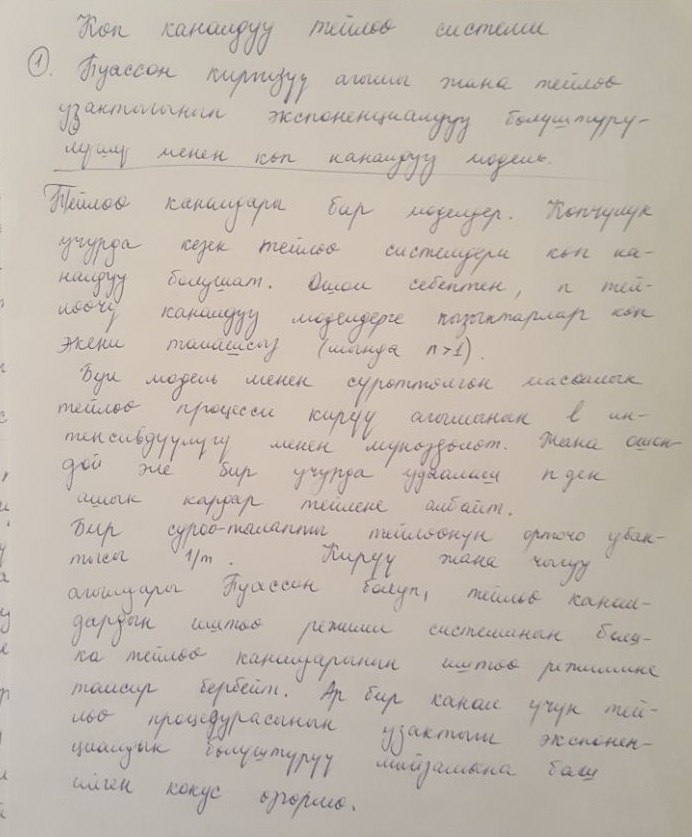 Көп каналдуу тейлөө системи
1. Пуассон киргизүү агымы жана тейлөө
узактыгынын экспоненциалдуу бөлүштүрү-
лүшү менен көп каналдуу модель.
Тейлөө каналдары бар моделдер. Көпчүлүк
учурда кезек тейлөө системдери көп ка-
налдуу болушат. Ошол себептен, n тей-
лөөчү каналдуу моделдерге кызыктарлар көп
экени талашсыз (мында n>1).
Бул модель менен сүрөттөлгөн массалык
тейлөө процесси кирүү агымынан l ин-
тенсивдүүлүгү менен мүнөздөлөт. Жана ошон-
дой эле бир учурда удаалаш n ден
ашык кардар тейлене албайт.
Бир суроо-талапты тейлөөнүн орточо убак-
тысы 1/m. Кирүү жана чыгуу
агымдары Пуассон болуп, тейлөө канал-
дардын иштөө режими системанын баш-
ка тейлөө каналдарынын иштөө режимине
таасир бербейт. Ар бир канал үчүн тей-
лөө процедурасынын узактыгы экспонен-
циалдык бөлүштүрүү мыйзамына баш
ийген кокус өзгөрмө.